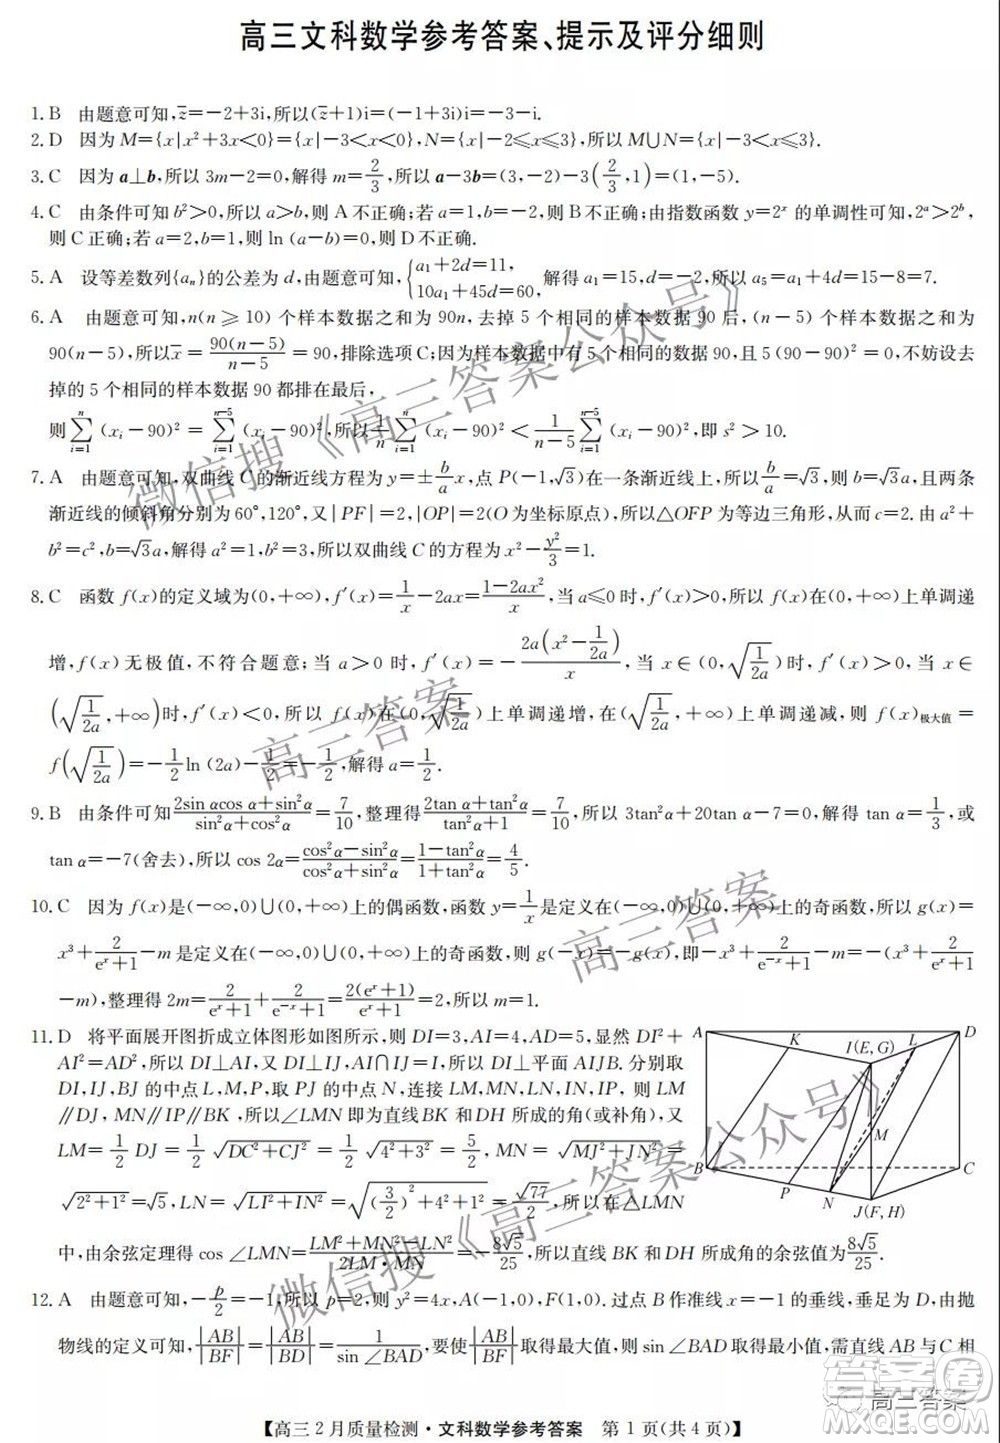 高三文科数学参考答案、提示及评分细则
1. B 由题意可知,z̄=-2+3i,所以(z̄+1)i=(-1+3i)i=-3-i.
2. D 因为 M={x|x²+3x<0}={x|-3<x<0},N={x|-2⩽x⩽3},所以 M∪N={x|-3<x⩽3}.
3. C 因为 a⊥b,所以 3m-2=0,解得 m=2/3,所以 a-3b=(3,-2)-3(2/3,1)=(1,-5).
4. C 由条件可知 b²>0,所以 a>b,则 A 不正确;若 a=1,b=-2,则 B 不正确;由指数函数 y=2ˣ 的单调性可知,2ᵃ>2ᵇ,
则 C 正确;若 a=2,b=1,则 ln (a-b)=0,则 D 不正确.
5. A 设等差数列{aₙ}的公差为 d,由题意可知,{a₁+2d=11, 10a₁+45d=60, 解得 a₁=15,d=-2,所以 a₅=a₁+4d=15-8=7.
6. A 由题意可知,n(n⩾10)个样本数据之和为 90n,去掉 5 个相同的样本数据 90 后,(n-5)个样本数据之和为
90(n-5),所以 x̄=90(n-5)/(n-5)=90,排除选项 C;因为样本数据中有 5 个相同的数据 90,且 5(90-90)²=0,不妨设去
掉的 5 个相同的样本数据 90 都排在最后,
则 ∑ⁿᵢ₌₁(xᵢ-90)²=∑ⁿ⁻⁵ᵢ₌₁(xᵢ-90)²,所以 1/n ∑ⁿᵢ₌₁(xᵢ-90)²<1/(n-5) ∑ⁿ⁻⁵ᵢ₌₁(xᵢ-90)²,即 s²>10.
7. A 由题意可知,双曲线 C 的渐近线方程为 y=±(b/a)x,点 P(-1,√3)在一条渐近线上,所以 b/a=√3,则 b=√3a,且两条
渐近线的倾斜角分别为 60°,120°,又|PF|=2,|OP|=2(O 为坐标原点),所以△OFP 为等边三角形,从而 c=2.由 a²+
b²=c²,b=√3a,解得 a²=1,b²=3,所以双曲线 C 的方程为 x²-y²/3=1.
8. C 函数 f(x)的定义域为(0,+∞),f′(x)=1/x-2ax=(1-2ax²)/x,当 a⩽0 时,f′(x)>0,所以 f(x)在(0,+∞)上单调递
增,f(x)无极值,不符合题意;当 a>0 时,f′(x)=-2a(x²-1/(2a))/x,当 x∈(0,√(1/(2a)))时,f′(x)>0,当 x∈
(√(1/(2a)),+∞)时,f′(x)<0,所以 f(x)在(0,√(1/(2a)))上单调递增,在(√(1/(2a)),+∞)上单调递减,则 f(x)极大值=
f(√(1/(2a)))=-1/2 ln (2a)-1/2=-1/2,解得 a=1/2.
9. B 由条件可知(2sin αcos α+sin²α)/(sin²α+cos²α)=7/10,整理得(2tan α+tan²α)/(tan²α+1)=7/10,所以 3tan²α+20tan α-7=0,解得 tan α=1/3,或
tan α=-7(舍去),所以 cos 2α=(cos²α-sin²α)/(cos²α+sin²α)=(1-tan²α)/(1+tan²α)=4/5.
10. C 因为 f(x)是(-∞,0)∪(0,+∞)上的偶函数,函数 y=1/x 是定义在(-∞,0)∪(0,+∞)上的奇函数,所以 g(x)=
x³+2/(eˣ+1)-m 是定义在(-∞,0)∪(0,+∞)上的奇函数,所以 g(-x)=-g(x),即-x³+2/(e⁻ˣ+1)-m=-(x³+2/(eˣ+1)
-m),整理得 2m=2/(eˣ+1)+2/(e⁻ˣ+1)=2(eˣ+1)/(eˣ+1)=2,所以 m=1.
11. D 将平面展开图折成立体图形如图所示,则 DI=3,AI=4,AD=5,显然 DI²+
AI²=AD²,所以 DI⊥AI,又 DI⊥IJ,AI∩IJ=I,所以 DI⊥平面 AIJB.分别取
DI,IJ,BJ 的中点 L,M,P,取 PJ 的中点 N,连接 LM,MN,LN,IN,IP,则 LM
∥DJ,MN∥IP∥BK,所以∠LMN 即为直线 BK 和 DH 所成的角(或补角),又
LM=1/2 DJ=1/2 √(DC²+CJ²)=1/2 √(4²+3²)=5/2,MN=√(MJ²+JN²)=
√(2²+1²)=√5,LN=√(LI²+IN²)=√((3/2)²+4²+1²)=√77/2,所以在△LMN
中,由余弦定理得 cos ∠LMN=(LM²+MN²-LN²)/(2LM·MN)=-8√5/25,所以直线 BK 和 DH 所成角的余弦值为 8√5/25.
A
K
I(E,G)
L
D
M
B
C
P
N
J(F,H)
12. A 由题意可知,-p/2=-1,所以 p=2,则 y²=4x,A(-1,0),F(1,0).过点 B 作准线 x=-1 的垂线,垂足为 D,由抛
物线的定义可知,|AB/BF|=|AB/BD|=1/(sin ∠BAD),要使|AB/BF|取得最大值,则 sin∠BAD 取得最小值,需直线 AB 与 C 相
【高三 2 月质量检测·文科数学参考答案 第 1 页(共 4 页)】
微信搜《高三答案公众号》
高三答案
高三答案
微信搜《高三答案公众号》
高三答案
答案圈